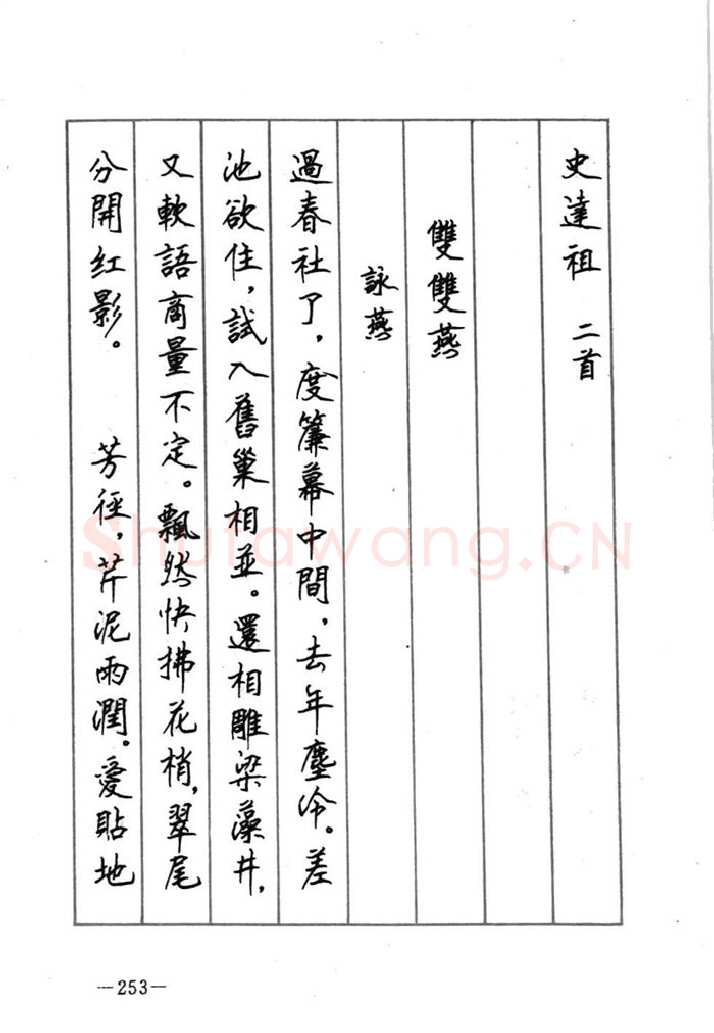 史達祖 二首
雙雙燕
詠燕
過春社了，度簾幕中間，去年塵冷。差
池欲住，試入舊巢相並。還相雕梁藻井，
又軟語商量不定。飄然快拂花梢，翠尾
分開红影。 芳徑，芹泥雨潤。愛貼地
—253—
Shufawang.CN